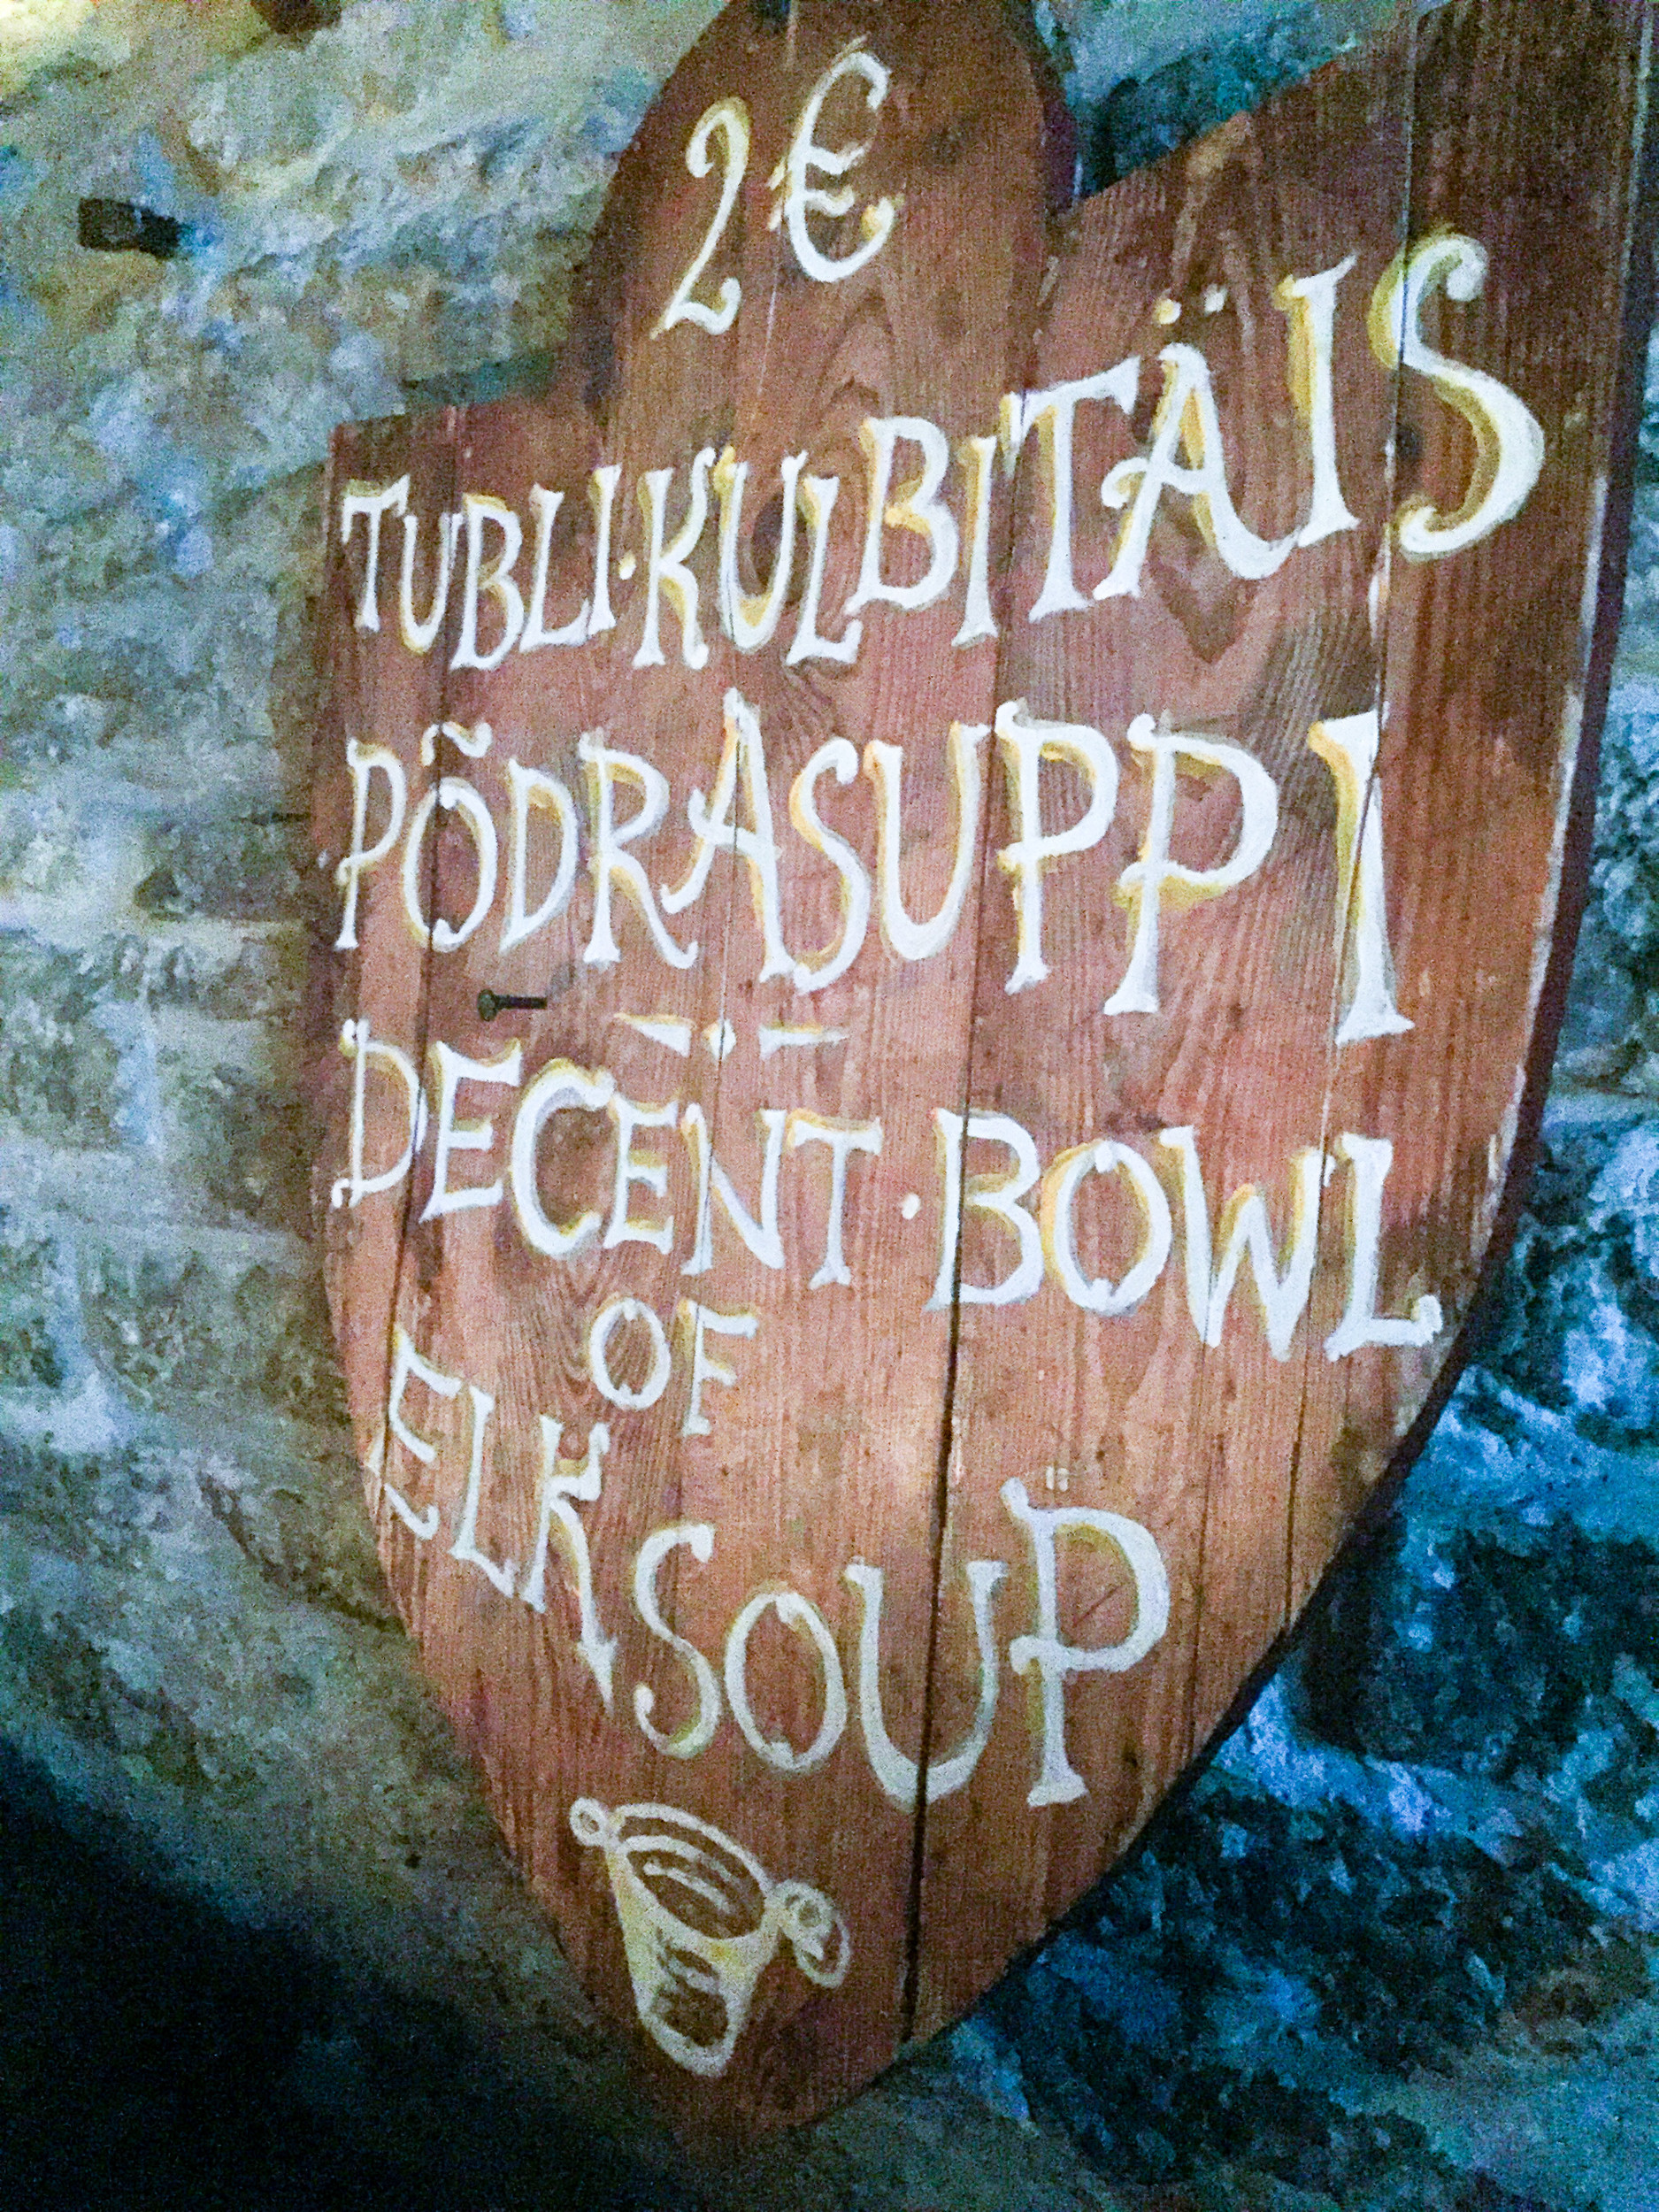 2€
TUBLI·KULBITÄIS
PÕDRASUPPI
DECENT·BOWL
OF
ELK
SOUP